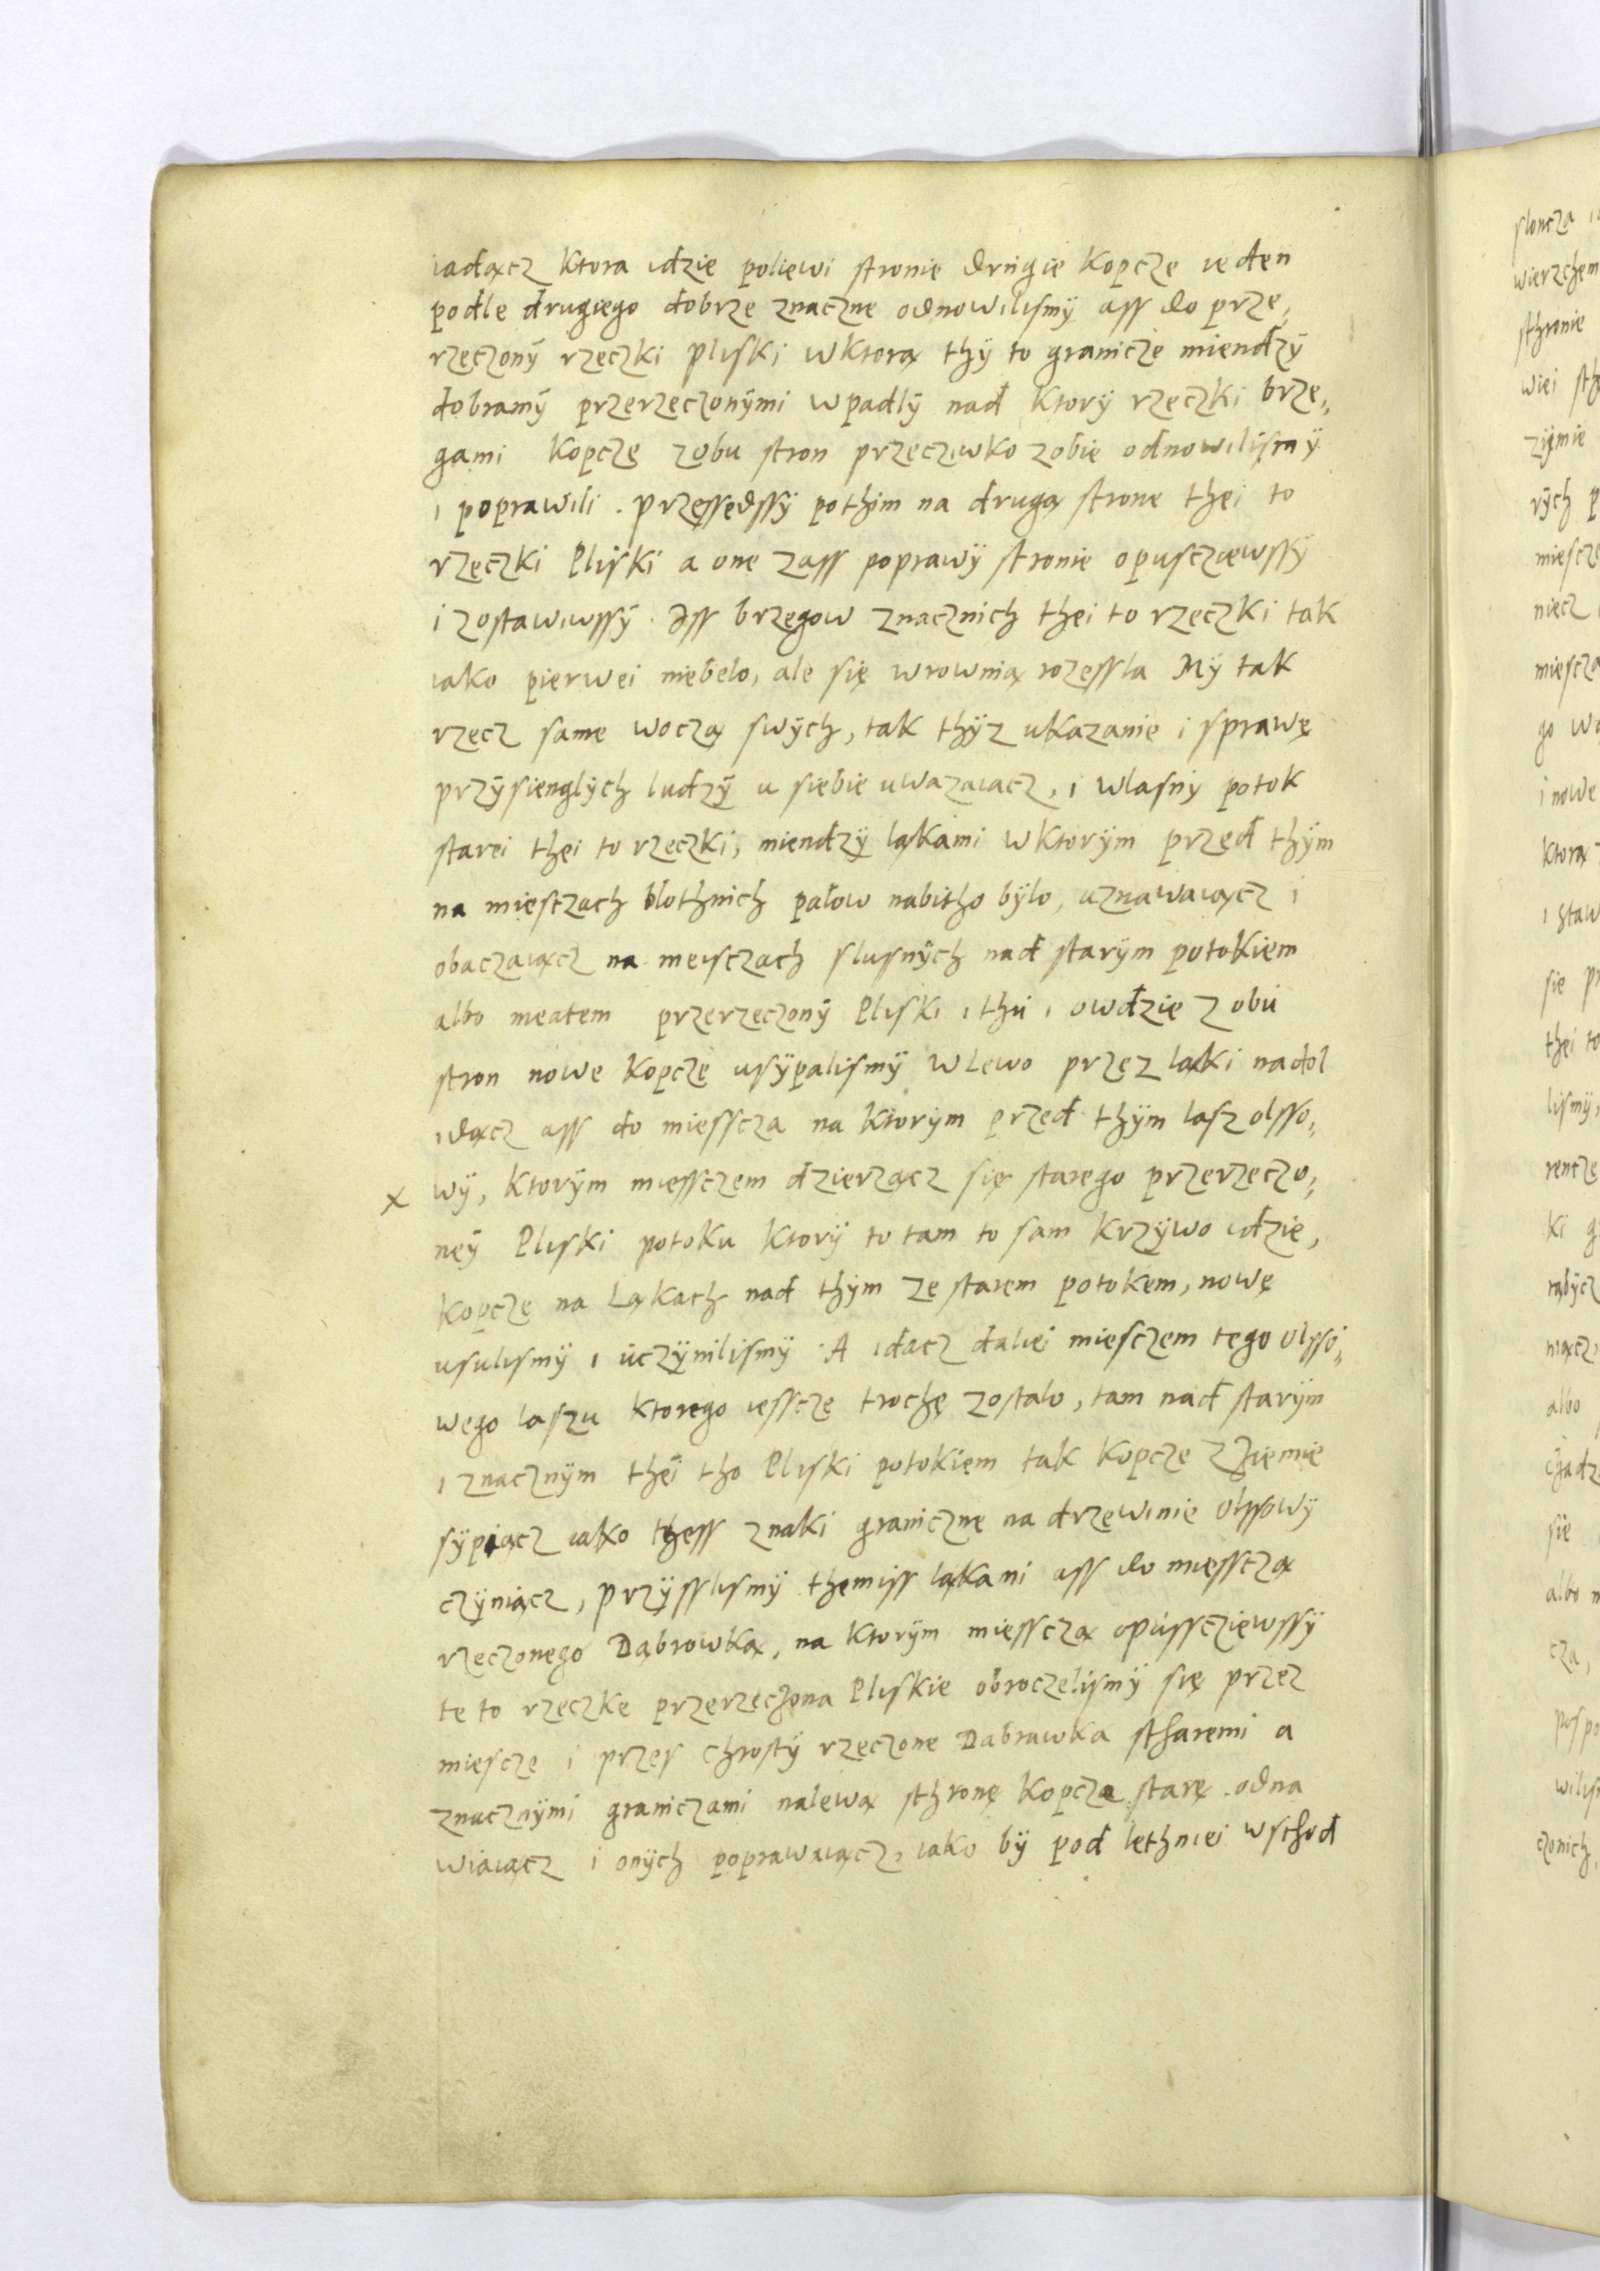 iadącz Ktora idzie poliewi stronie drugie Kopcze ieden
podle drugiego dobrze znaczne odnowilismÿ ass do prze,
rzeczonÿ rzeczki pliski wktorą thÿ to granicze miendzÿ
dobramÿ przerzeczonÿmi wpadlÿ nad Ktorÿ rzeczki brze,,
gami Kopczę zobu stron przecziwko zobie odnowilismÿ
i poprawili . przessedssÿ pothim na drugą strone thei to
rzeczki Pliski a one zass poprawÿ stronie opusczcewssÿ
i zostawiwssÿ . Ass brzegow znacznich thei to rzeczki tak
iako pierwei niebelo, ale się wrownią rozessla Mÿ tak
rzecz same woczą swÿch, tak thÿz ukazanie i sprawę
przÿsienglÿch ludzÿ u siebie uwazaiacz, i wlasnÿ potok
starei thei to rzeczki, miendzÿ ląkami wktorÿm przed thÿm
na miesczach blothnich palow nabitho bÿlo, uznawaiącz i
obaczaiącz na meisczach slusnÿch nad starÿm potokiem
albo meatem przerzeczonÿ Pliski i thu i owdzie z obu
stron nowe Kopczę usÿpalismÿ wlewo przez ląki nadol
idącz ass do miesscza na Ktorÿm przed thÿm lasz olsso,,
x wÿ, Ktorÿm miessczem dzierzącz się starego przerzeczo,,
neÿ Pliski potoku Ktorÿ to tam to sam Krzÿwo idzie,
Kopcze na Ląkach nad thÿm ze starem potokem, nowę
usulismÿ i uczÿnilismÿ . A idacz daliei miesczem tego olsso,,
wego laszu Ktorego iesscze trochę zostalo, tam nad starÿm
i znacznÿm thei tho Pliski potokiem tak Kopcze z ziemie
sÿpiącz iako thess znaki granicznę na drzewinie olssowÿ
czÿniącz, przÿsslismÿ themiss ląkami ass do miessczą
rzeczonego Dąbrowką, na Ktorÿm miessczą opusscziewssÿ
te to rzeczke przerzeczona Pliskie obroczelismÿ się przez
miescze i przes chrostÿ rzeczone Dabrawka stharemi a
znacznÿmi graniczami nalewą sthronę Kopcza starę odna
wiaiącz i onÿch poprawaiącz, iako bÿ pod lethniei wschod